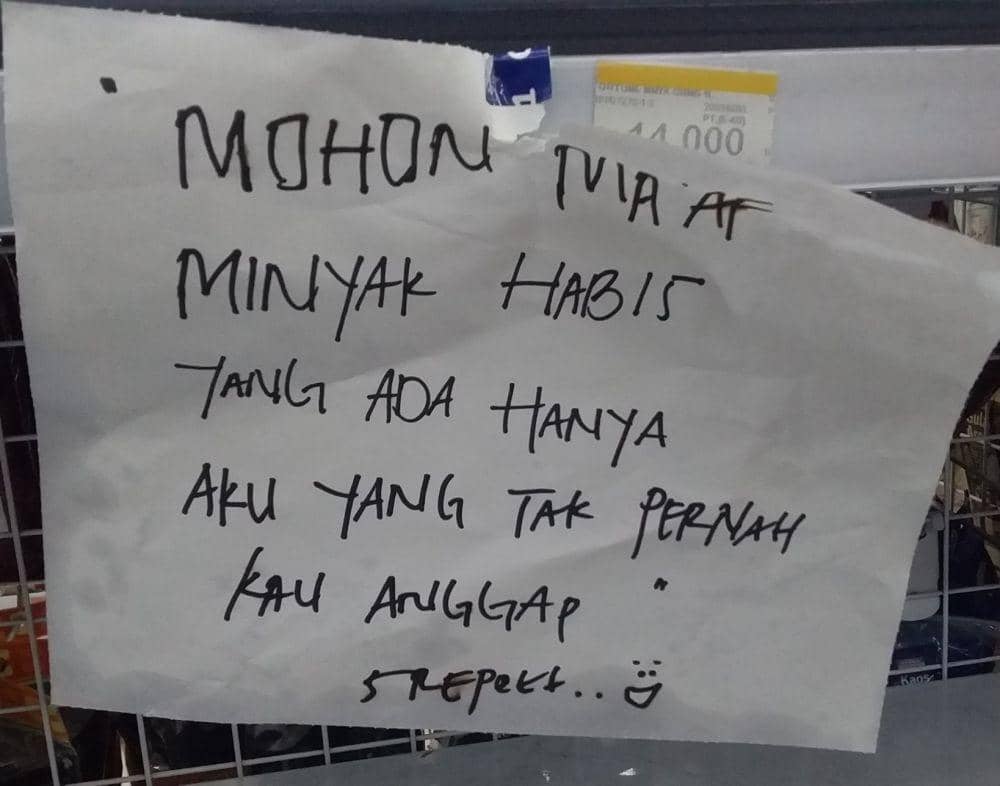 MOHON MA'AF
MINYAK HABIS
YANG ADA HANYA
AKU YANG TAK PERNAH
KAU ANGGAP "
14.000
Kaos